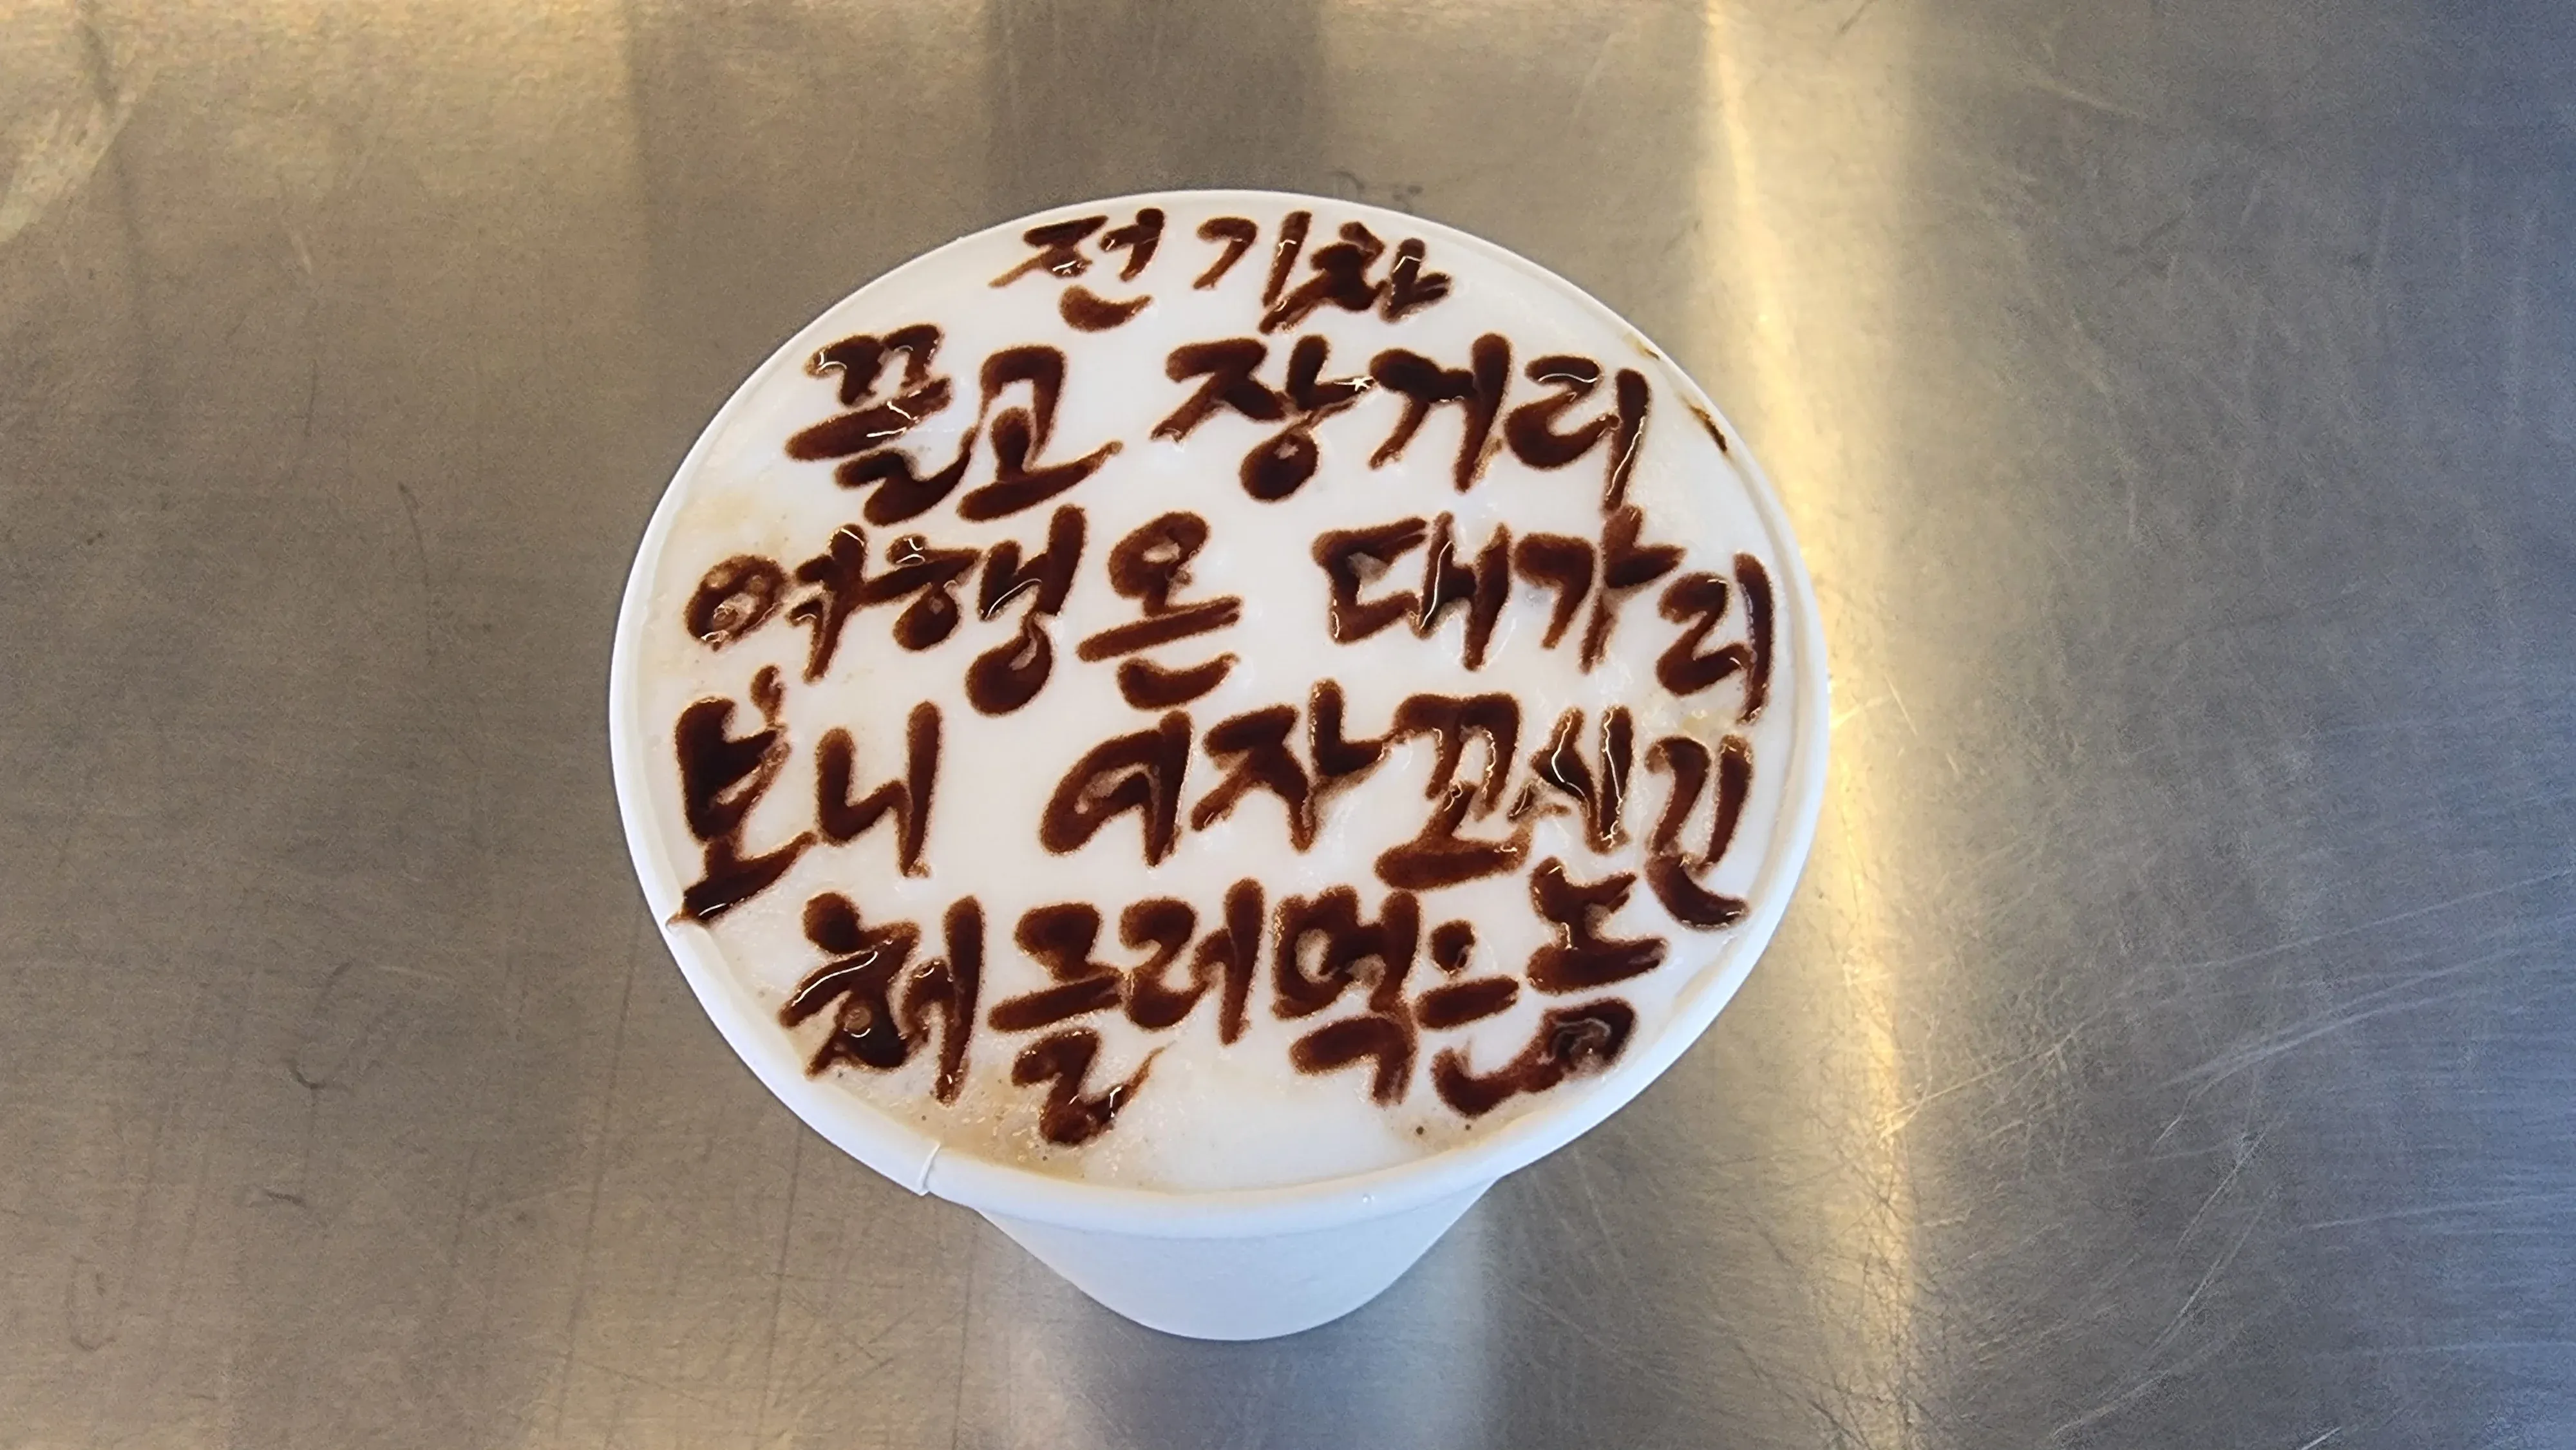 전기차
끌고 장거리
여행온 대가리
보니 여자꼬시긴
헤글러먹은놈